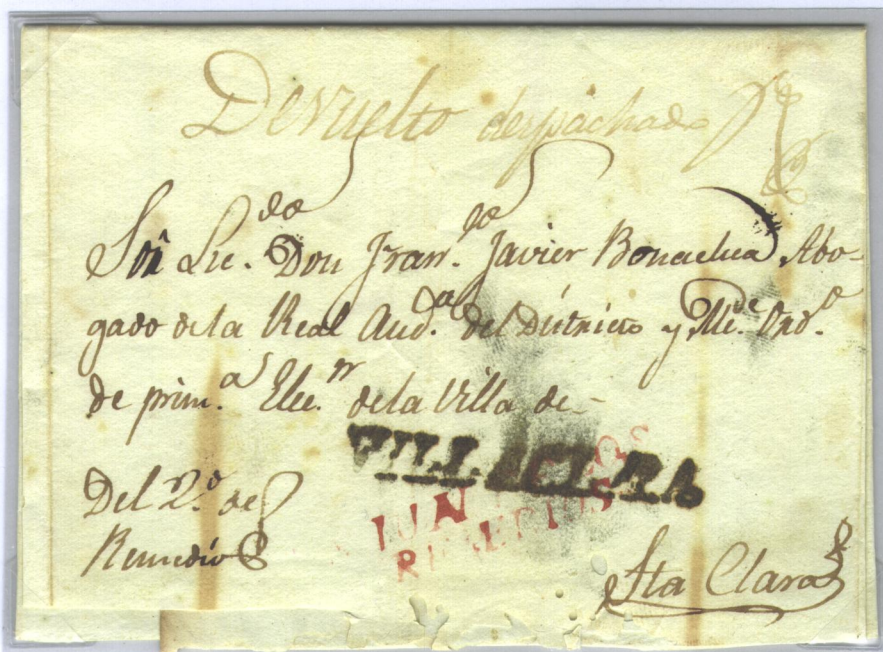 Devuelto despachado
Sor. Licdo. Don Franco. Javier Bonachea Abo-
gado de la Real Auda. del Distrieto y Ale. Ordo.
de prima. Elecn. de la Villa de
VILLACLARA
Del 2o. de
Remedios
REMEDIOS
Sta Clara